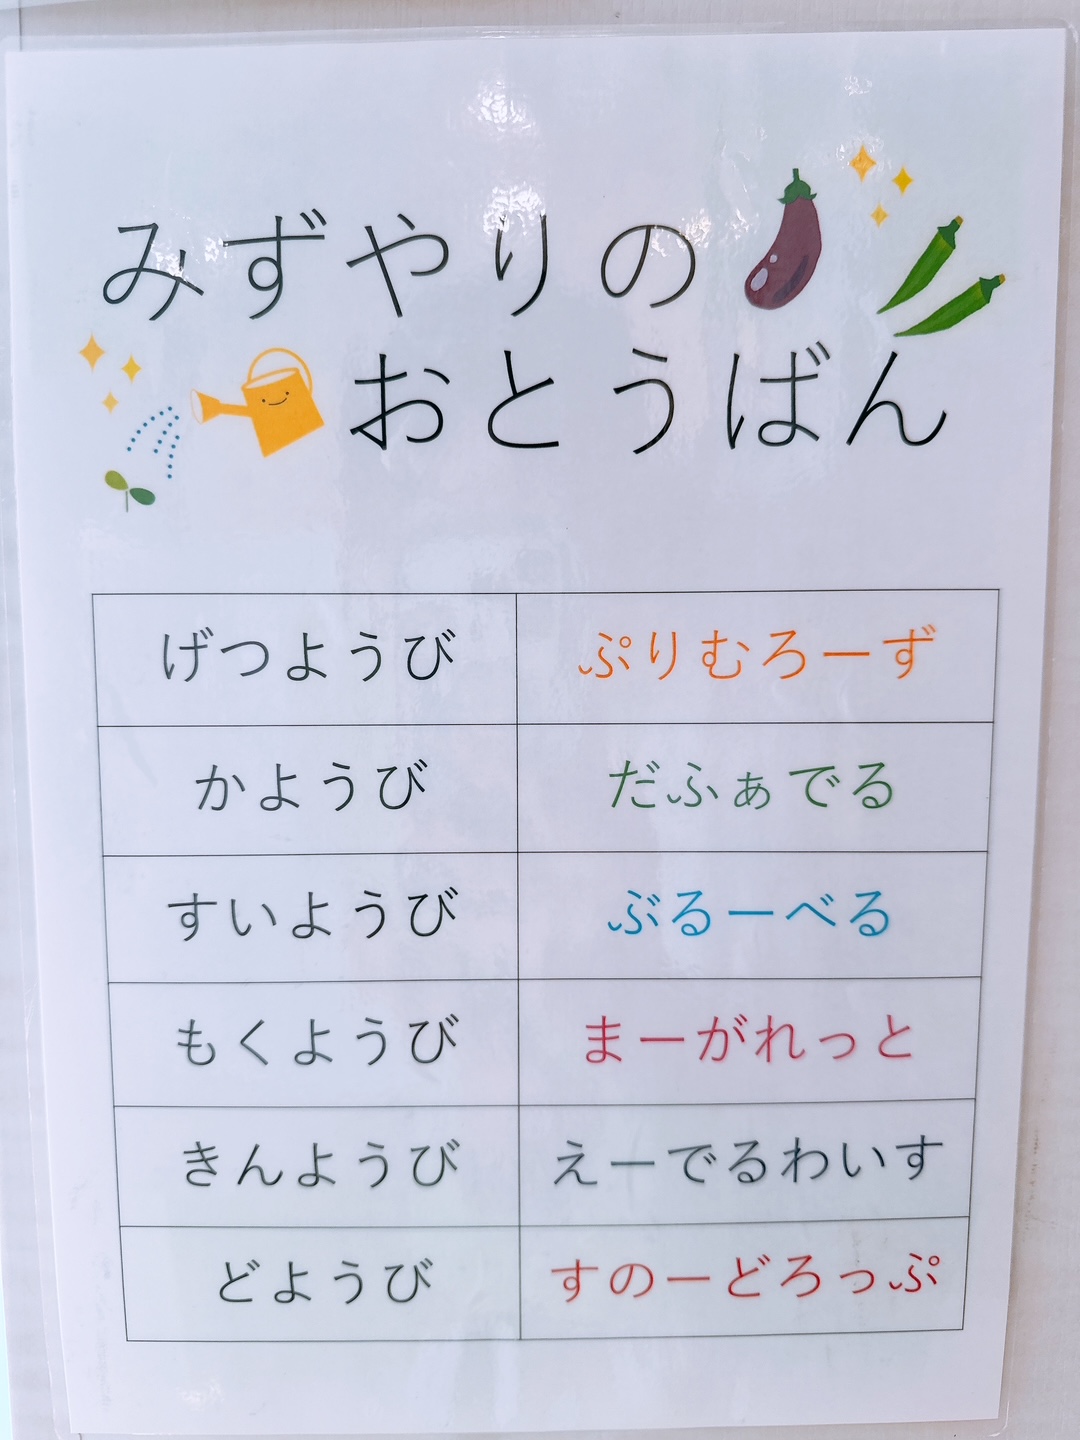 みずやりの
おとうばん
げつようび ぷりむろーず
かようび だふぁでる
すいようび ぶるーべる
もくようび まーがれっと
きんようび えーでるわいす
どようび すのーどろっぷ